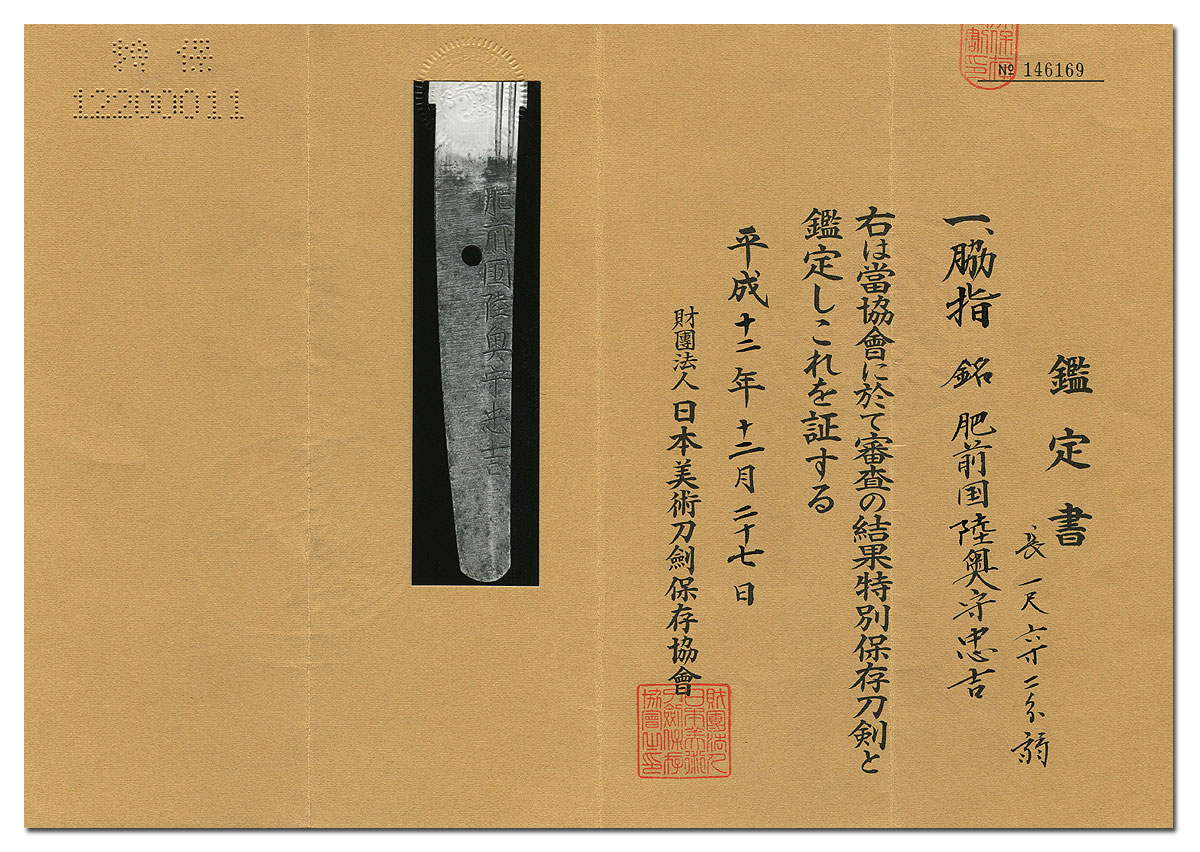 № 146169
鑑定書
一、脇指 銘 肥前国陸奥守忠吉
長一尺六寸二分弱
右は當協會に於て審査の結果特別保存刀剣と
鑑定しこれを証する
平成十二年十二月二十七日
財團法人日本美術刀劍保存協會
財團法人
日本美術
刀劍保存
協會之印
肥前国陸奥守忠吉
特保
12200011